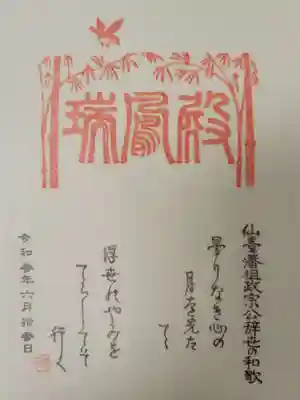 瑞鳳殿
仙臺藩祖政宗公辞世の和歌
曇りなき心の
月を先た
て
浮世のやみを
てらしてそ
行く
令和参年六月拾参日